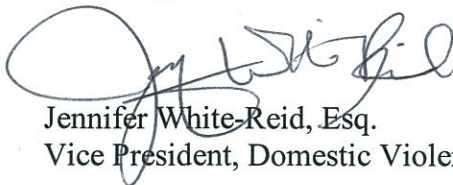 Jennifer White-Reid, Esq.
Vice President, Domestic Viole